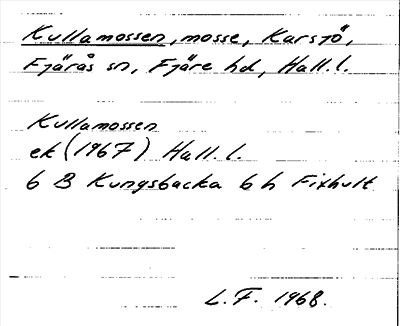 Kullamossen, mosse, Karsjö,
Fjärås sn, Fjäre hd, Hall. l.
Kullamossen
ek (1967) Hall. l.
6 B Kungsbacka 6 h Fixhult
L. F. 1968.